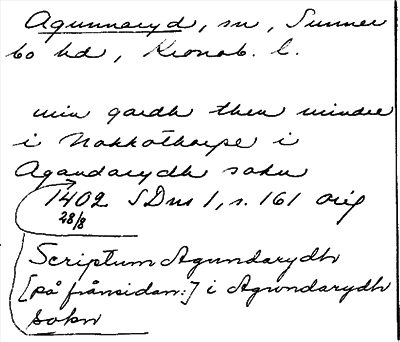 Agunnaryd, sn, Sunner
bo hd, Kronob. l.
min gardh then mindre
i Nakkathorpe i
Agundarydh sokn
1402 SDns 1, s. 161 orig
28/8
Scriptum Agundarydh
[på frånsidan:] i Agundarydh
sokn